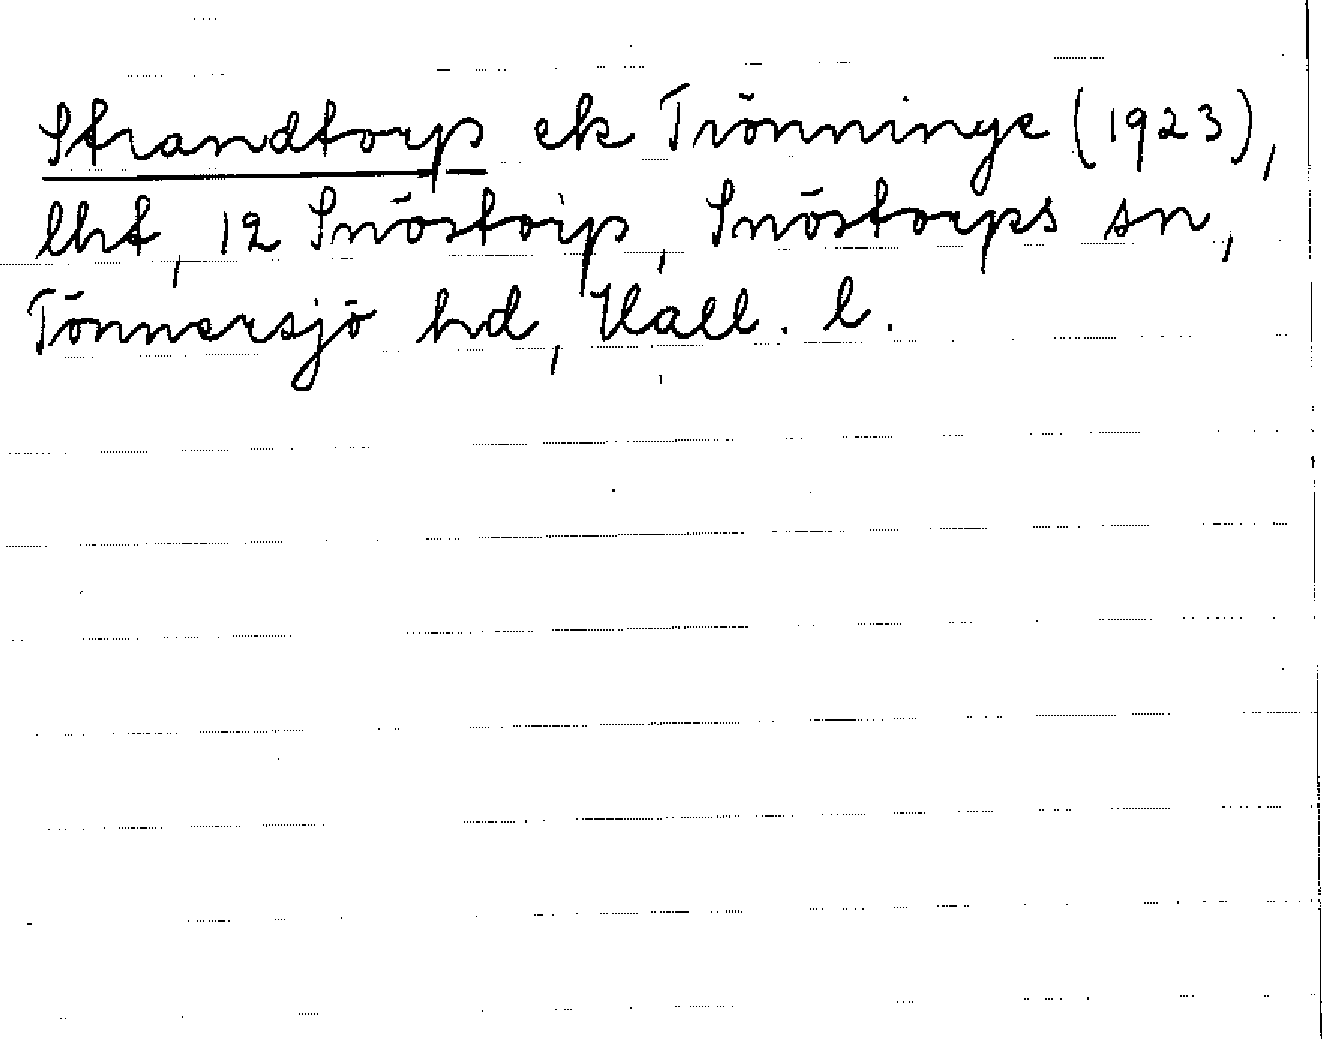 Strandtorp ek Trönninge (1923),
lht, 12 Snöstorp, Snöstorps sn,
Tönnersjö hd, Hall. l.